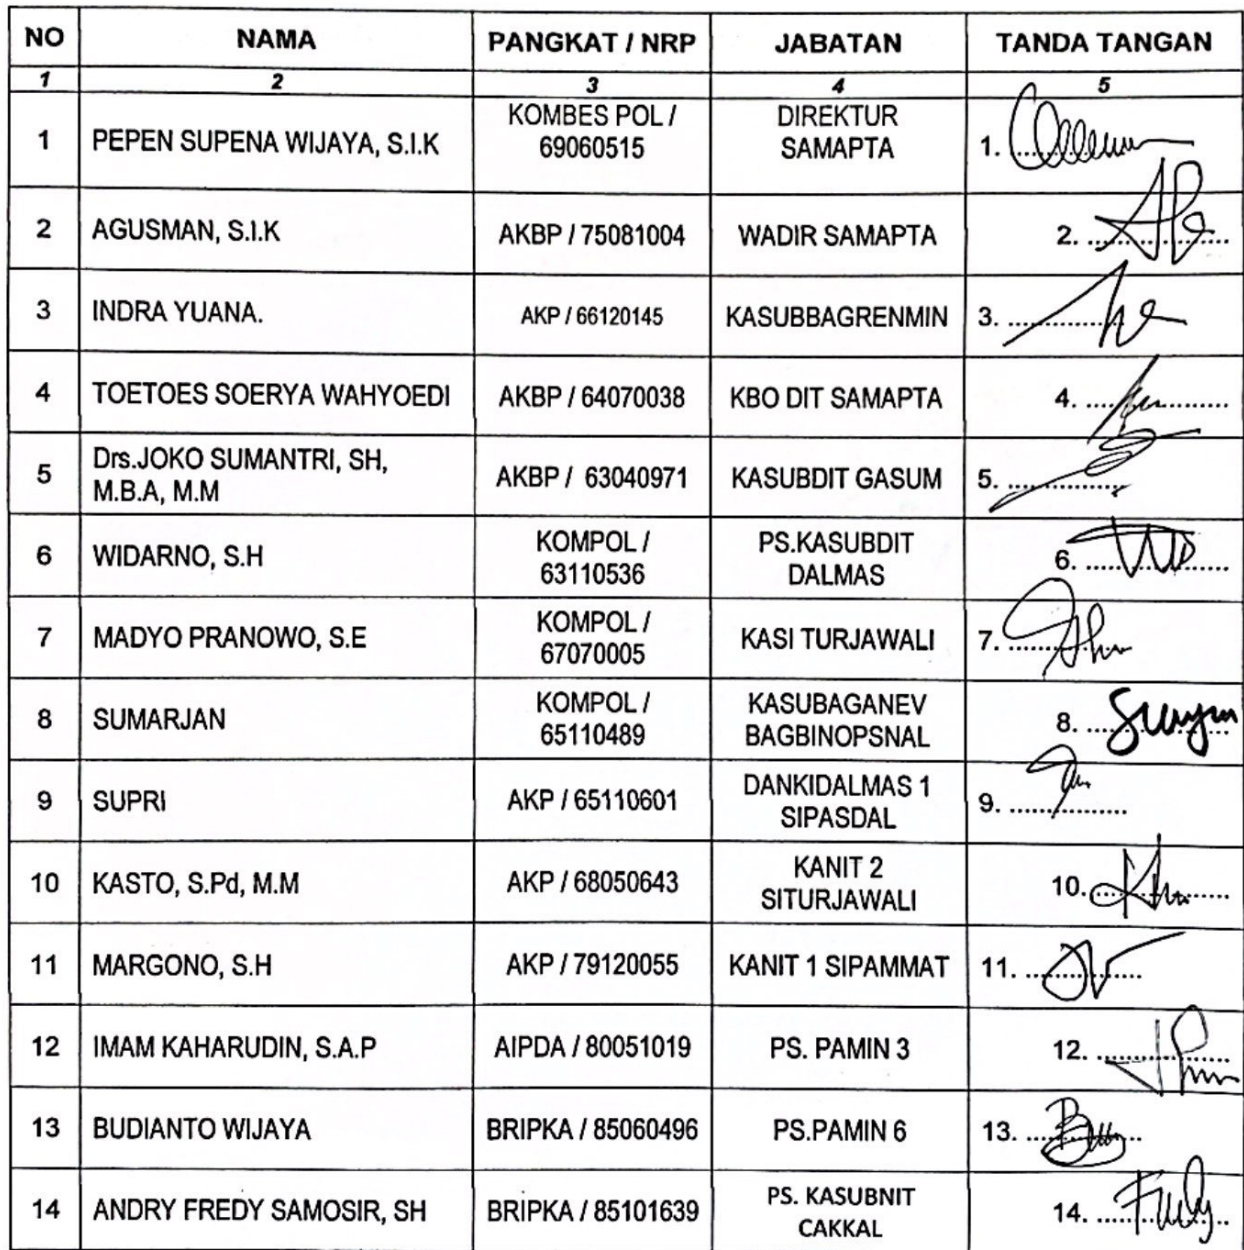 NO NAMA PANGKAT / NRP JABATAN TANDA TANGAN
1 2 3 4 5
1 PEPEN SUPENA WIJAYA, S.I.K KOMBES POL / 69060515 DIREKTUR SAMAPTA 1.
2 AGUSMAN, S.I.K AKBP / 75081004 WADIR SAMAPTA 2.
3 INDRA YUANA. AKP / 66120145 KASUBBAGRENMIN 3.
4 TOETOES SOERYA WAHYOEDI AKBP / 64070038 KBO DIT SAMAPTA 4.
5 Drs.JOKO SUMANTRI, SH, M.B.A, M.M AKBP / 63040971 KASUBDIT GASUM 5.
6 WIDARNO, S.H KOMPOL / 63110536 PS.KASUBDIT DALMAS 6.
7 MADYO PRANOWO, S.E KOMPOL / 67070005 KASI TURJAWALI 7.
8 SUMARJAN KOMPOL / 65110489 KASUBAGANEV BAGBINOPSNAL 8.
9 SUPRI AKP / 65110601 DANKIDALMAS 1 SIPASDAL 9.
10 KASTO, S.Pd, M.M AKP / 68050643 KANIT 2 SITURJAWALI 10.
11 MARGONO, S.H AKP / 79120055 KANIT 1 SIPAMMAT 11.
12 IMAM KAHARUDIN, S.A.P AIPDA / 80051019 PS. PAMIN 3 12.
13 BUDIANTO WIJAYA BRIPKA / 85060496 PS.PAMIN 6 13.
14 ANDRY FREDY SAMOSIR, SH BRIPKA / 85101639 PS. KASUBNIT CAKKAL 14.